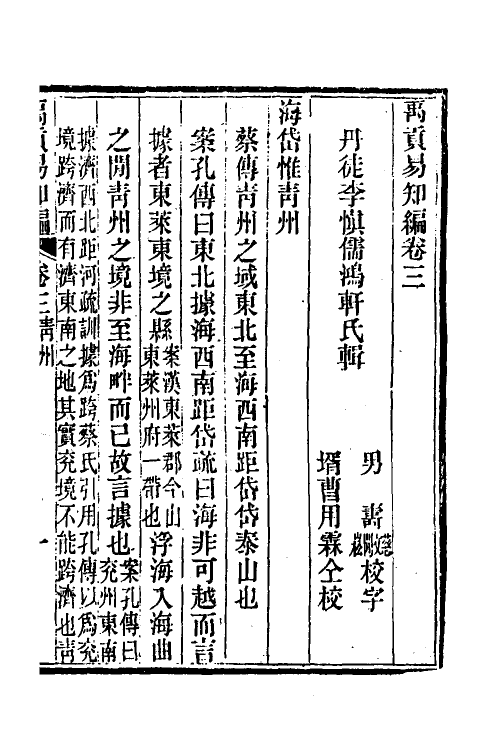 禹貢易知編卷三
丹徒李愼儒鴻軒氏輯
男 壽 校字
壻曹用霖仝校
海岱惟青州
蔡傳青州之域東北至海西南距岱岱泰山也
案孔傳曰東北據海西南距岱疏曰海非可越而言
據者東萊東境之縣案漢東萊郡今山東萊州府一帶也浮海入海曲
之閒青州之境非至海畔而已故言據也案孔傳曰兖州東南
據濟西北距河疏訓據爲跨蔡氏引用孔傳以爲兖
境跨濟而有濟東南之地其實兖境不能跨濟也青
禹貢易知編 卷三青州 一